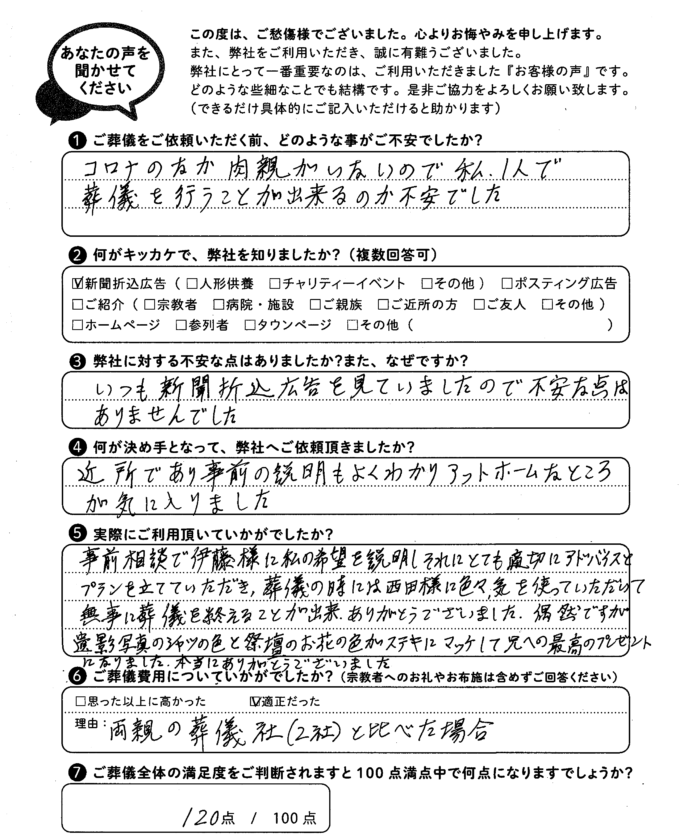 あなたの声を
聞かせて
ください
この度は、ご愁傷様でございました。心よりお悔やみを申し上げます。
また、弊社をご利用いただき、誠に有難うございました。
弊社にとって一番重要なのは、ご利用いただきました『お客様の声』です。
どのような些細なことでも結構です。是非ご協力をよろしくお願い致します。
（できるだけ具体的にご記入いただけると助かります）
❶ ご葬儀をご依頼いただく前、どのような事がご不安でしたか？
コロナのなか 肉親がいないので 私、1人で
葬儀を行うことが出来るのか不安でした
❷ 何がキッカケで、弊社を知りましたか？（複数回答可）
☑新聞折込広告（ □人形供養 □チャリティーイベント □その他 ） □ポスティング広告
□ご紹介（ □宗教者 □病院・施設 □ご親族 □ご近所の方 □ご友人 □その他 ）
□ホームページ □参列者 □タウンページ □その他（ ）
❸ 弊社に対する不安な点はありましたか？また、なぜですか？
いつも新聞折込広告を見ていましたので不安な点は
ありませんでした
❹ 何が決め手となって、弊社へご依頼頂きましたか？
近所であり事前の説明もよくわかりアットホームなところ
が気に入りました
❺ 実際にご利用頂いていかがでしたか？
事前相談で伊藤様に私の希望を説明しそれにとても適切にアドバイスと
プランを立てていただき、葬儀の時には西田様に色々気を使っていただいて
無事に葬儀を終えることが出来、ありがとうございました。偶然ですが
遺影写真のシャツの色と祭壇のお花の色がステキにマッチして兄への最高のプレゼント
になりました。本当にありがとうございました
❻ ご葬儀費用についていかがでしたか？（宗教者へのお礼やお布施は含めずご回答ください）
□思った以上に高かった ☑適正だった
理由：両親の葬儀社（2社）と比べた場合
❼ ご葬儀全体の満足度をご判断されますと100点満点中で何点になりますでしょうか？
120点 / 100点